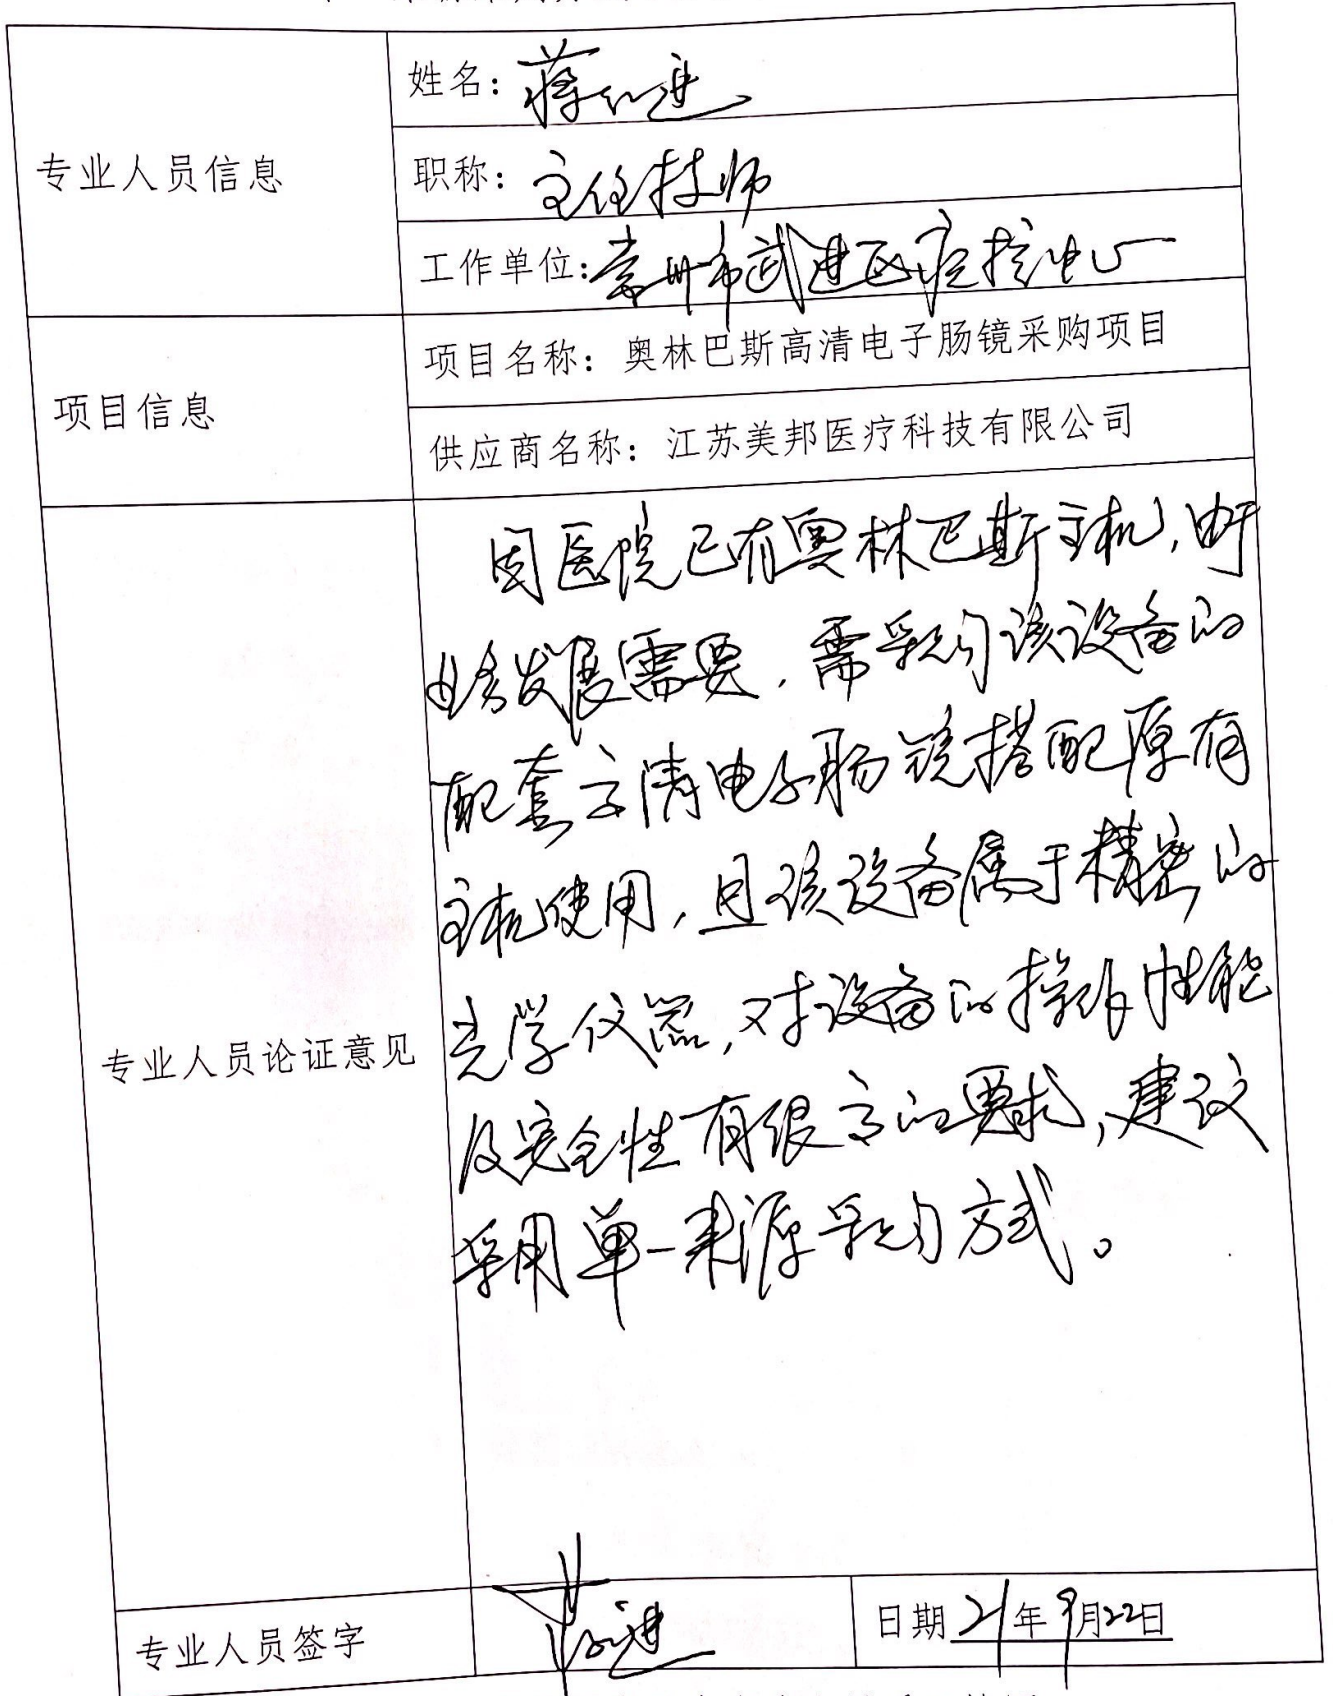 专业人员信息
姓名：蒋红进
职称：主任技师
工作单位：常州市武进区疾控中心
项目信息
项目名称：奥林巴斯高清电子肠镜采购项目
供应商名称：江苏美邦医疗科技有限公司
专业人员论证意见
因医院已有奥林巴斯主机，由于
业务发展需要，需采购该设备的
配套高清电子肠镜搭配原有
主机使用，且该设备属于精密的
光学仪器，对设备的操作性能
及安全性有很高的要求，建议
采用单一来源采购方式。
专业人员签字
日期 21年9月22日